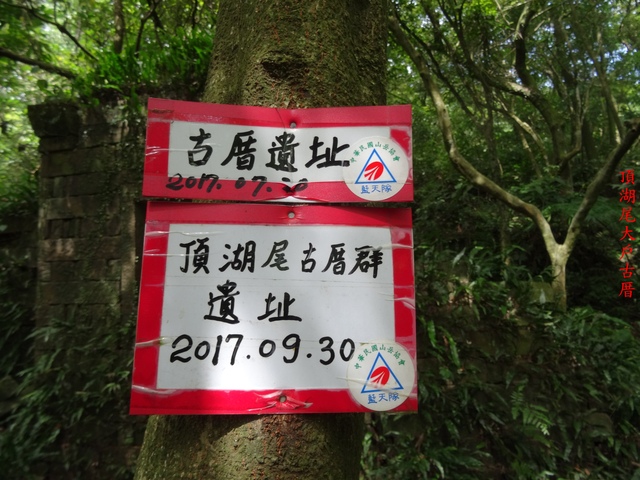 古厝遺址
2017.07.20
中華民國山岳協會
藍天隊
頂湖尾古厝群
遺址
2017.09.30
中華民國山岳協會
藍天隊